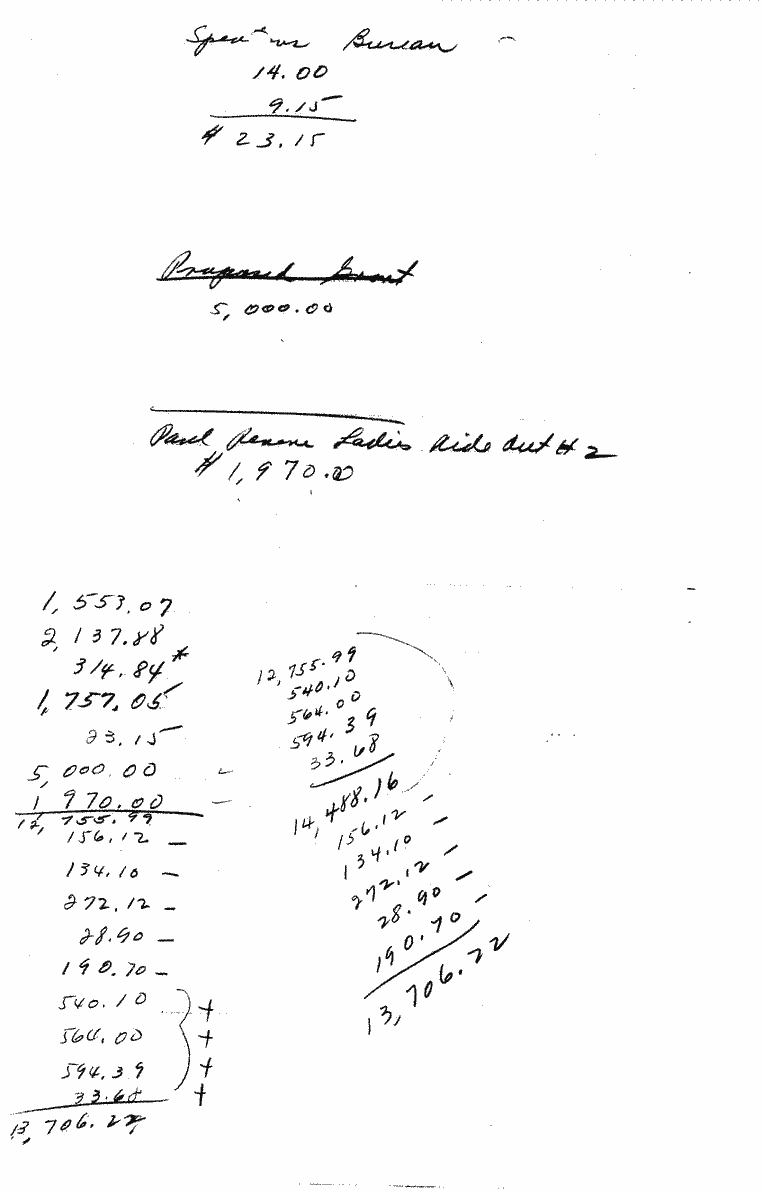 Speakers Bureau -
14.00
9.15
$ 23.15
Proposed Grant
5,000.00
Paul Revere Ladies Aide Out # 2
$ 1,970.00
1,553.07
2,137.88
314.84*
1,757.05
23.15
5,000.00 -
1 970.00 -
12,755.99
156.12 -
134.10 -
272.12 -
28.90 -
190.70 -
540.10 +
564.00 +
594.39 +
33.68 +
13,706.22
12,755.99
540.10
564.00
594.39
33.68
14,488.16
156.12 -
134.10 -
272.12 -
28.90 -
190.70 -
13,706.22